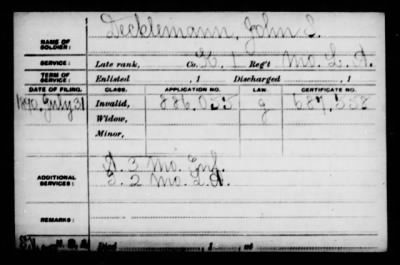 NAME OF SOLDIER: Decklemann, John S.
SERVICE: Late rank, Co. K, 1 Reg't Mo. L. A.
TERM OF SERVICE: Enlisted , 1 Discharged , 1
DATE OF FILING. CLASS. APPLICATION NO. LAW. CERTIFICATE NO.
1890, July 31 Invalid, 886,035 g 687,558
Widow,
Minor,
ADDITIONAL SERVICES: A. 3 Mo. Inf.
I. 2 Mo. L. A.
REMARKS:
Died , 1 , at